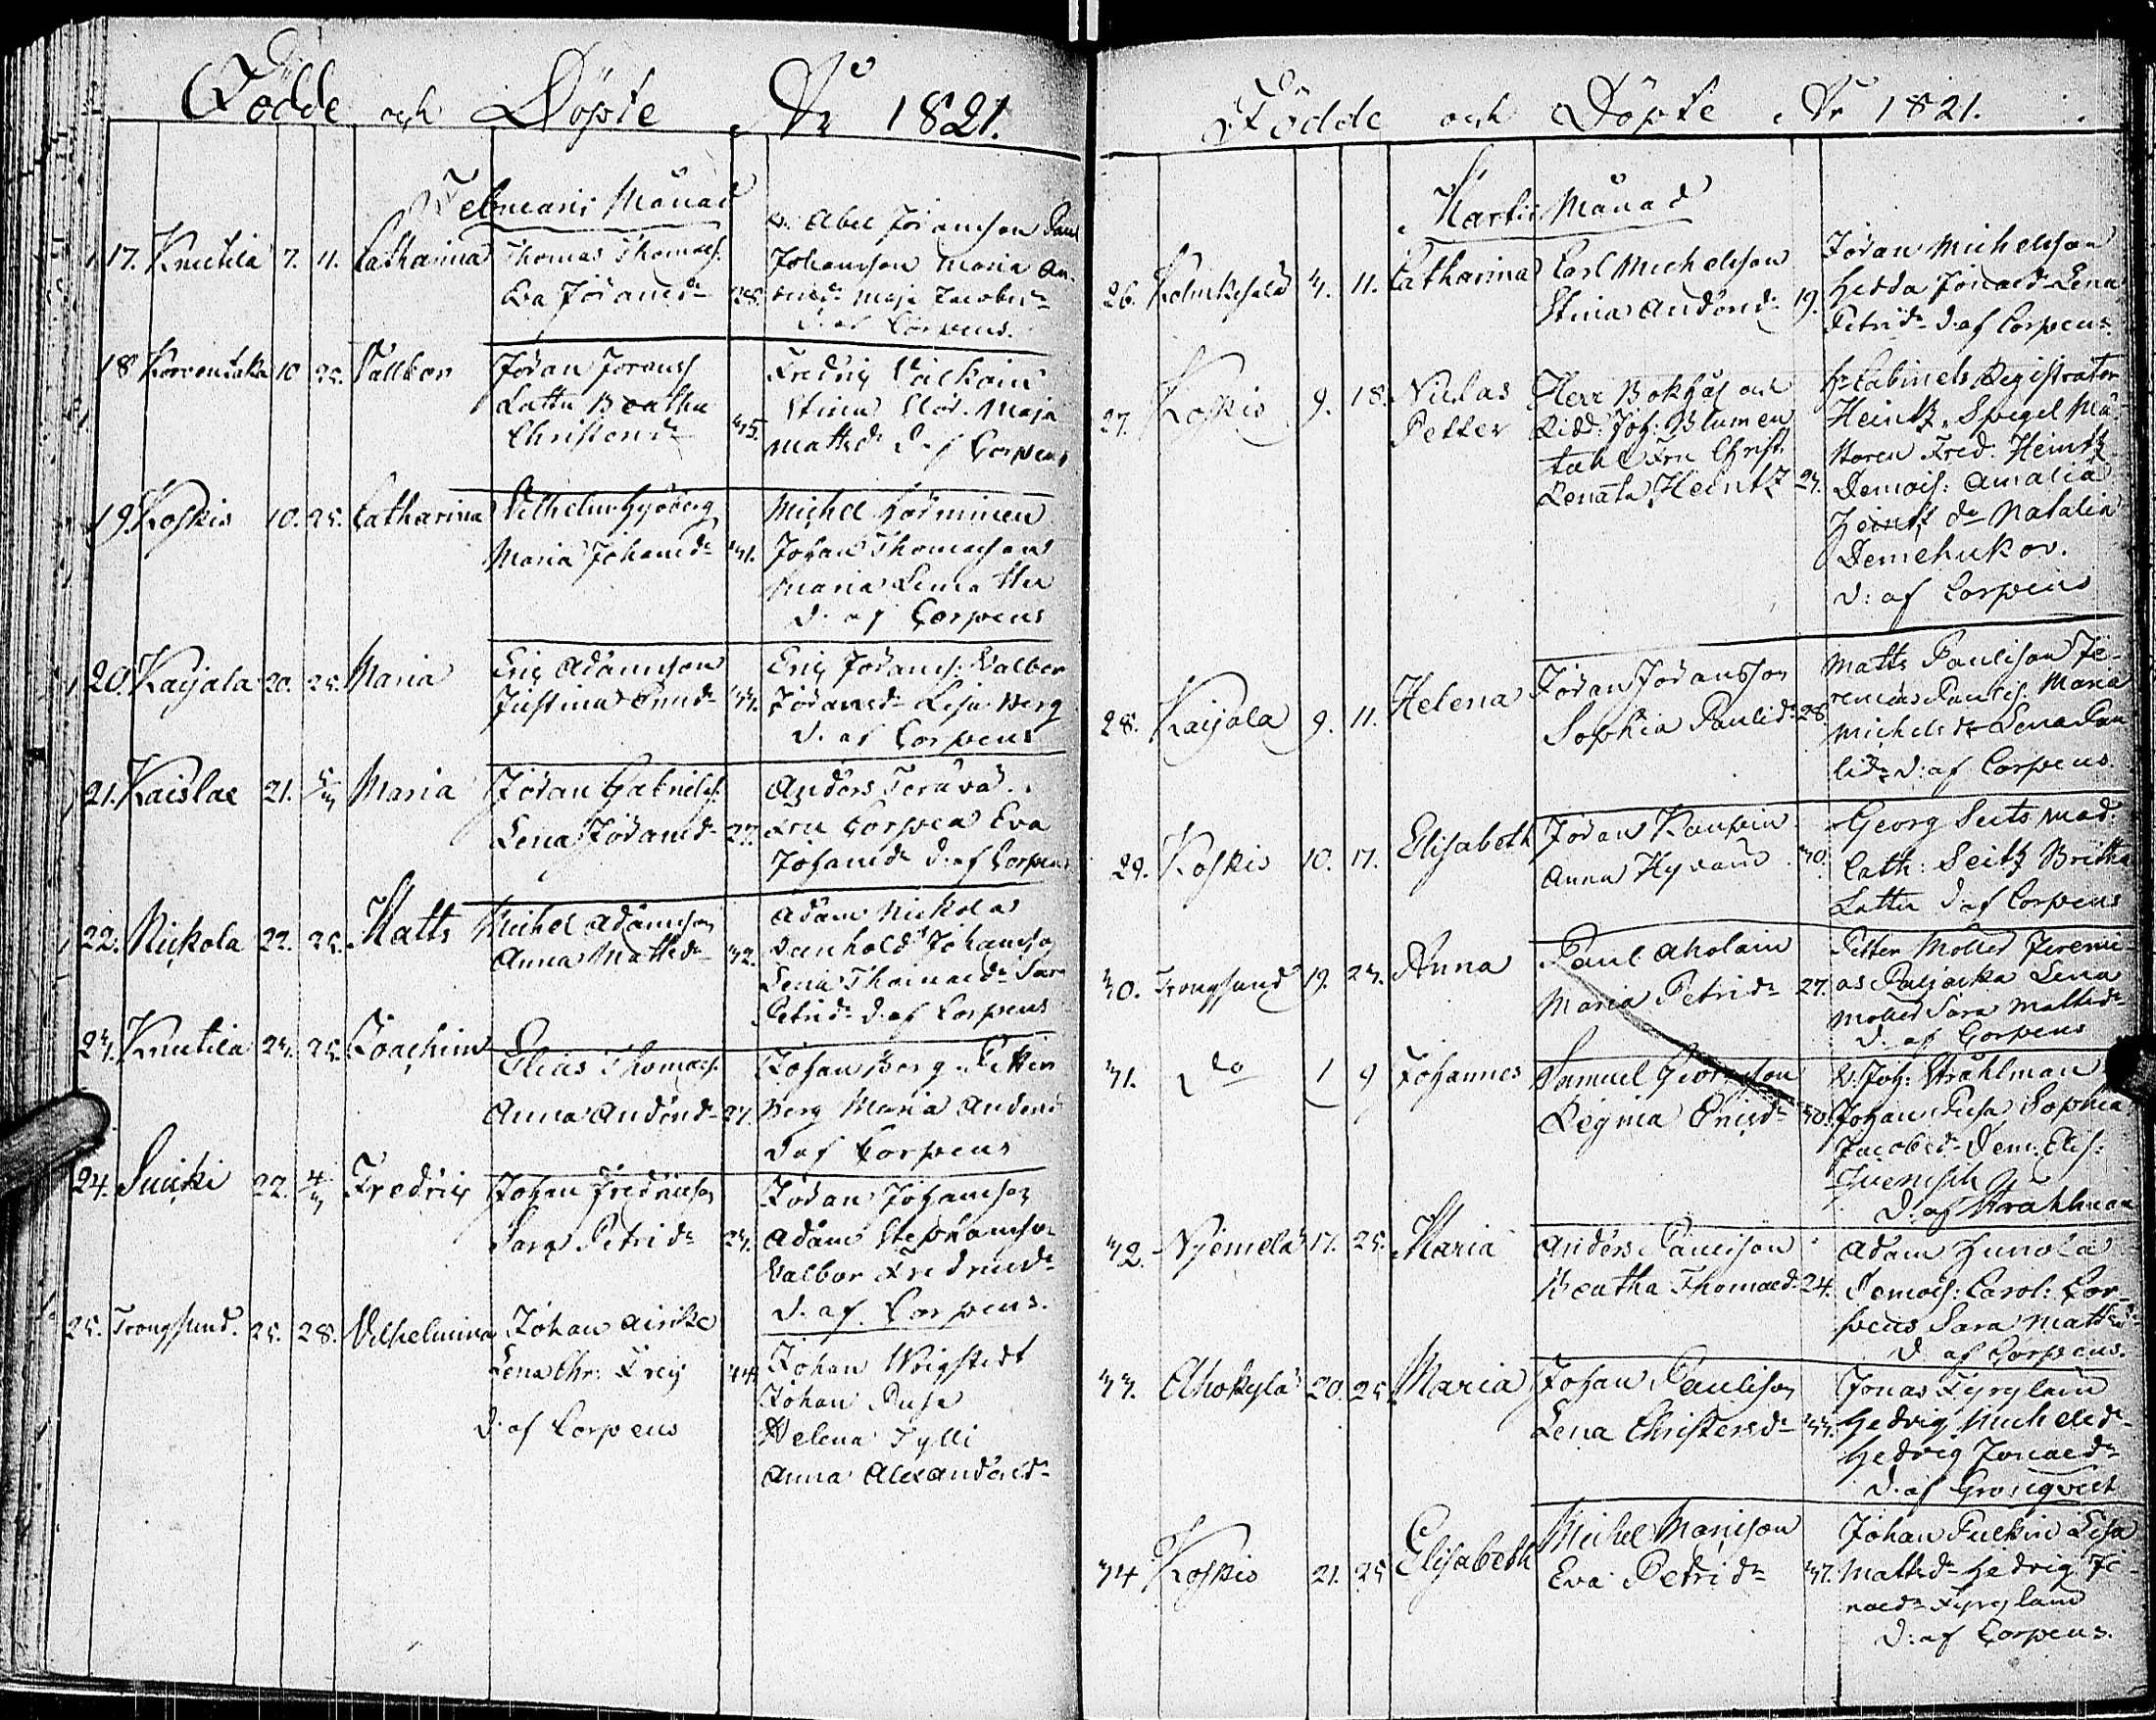 Födde och Döpte År 1821.
Februarii Månad
17. Knutila 7. 11. Catharina Thomas Thomass.
Eva Jöransdr 28.
Abel Jöransson Paul
Johansson Maria An
Maja Jacobsdr
D. af Corpeus.
18 Korventaka 10 25. Vallbor Jöran Jöranss
Lattu Beatha
Christersdr 35.
Fredric Valkain
Stina Maja
Mattsdr D. af Corpeus
19. Koskis 10. 25. Catharina Vilhelm Sjöberg
Maria Johansdr 31.
Michel Hörminen
Johan Thomasson
Maria Lena
D. af Corpeus
20. Kaijala 20. 25. Maria Eric Adamsson
Justina Ericsdr 33.
Eric Jörans. Valbor
Jöransdr Lisa Berg
D. af Corpeus
21. Kaislax 21. 5/3 Maria Jöran Gabriels.
Lena Jöransdr 27.
Anders Terava.
Fru Corpeus Eva
Johansdr D. af Corpeus
22. Nickola 22. 25. Matts Michel Adamsson
Anna Mattsdr 32.
Adam Nickola
Renhold Johansson
Lena Thomaedr Sara
Petridr D. af Corpeus
23. Knutila 23. 25. Joachim Elias Thomass.
Anna Andersdr 27.
Johan Berg Petter
Berg Maria Andersd
D af Corpeus
24. Suicki 22. 4/3 Fredric Johan Fredricsson
Sara Petridr 23.
Jöran Johansson
Adam Stephansson
Valbor Fredricsdr
D. af Corpeus.
25. Trongsund. 25. 28. Vilhelmina Johan Airike
Lena Chr: Freij 44
D. af Corpeus
Johan Wrigstedt
Johan Pusa
Helena Tylli
Anna Alexandersdr
Födde och Döpte År 1821.
Martii Månad
26. Kolmikesälä 3. 11. Catharina Carl Michelsson
Stina Andersdr 19.
Jöran Michelsson
Hedda Jonaedr Lena
Petridr D. af Corpeus.
27. Koskis 9. 18. Niclas
Petter
Herr Bokhål och
Ridd: Joh: Blumen
tahl Fru Christ.
Renata Heintz 23.
Hr Cabinets Registrator
Heintz, Spegel Mä-
staren Fred. Heintz
Demois: Amalia
Heintz do Natalia
Demchukov.
D: af Corpeus
28. Kaijala 9. 11. Helena Jöran Jöransson
Sophia Paulidr 28.
Matts Paulison Je-
remias Paulis. Maria
Michelsdr Lena Pau
lidr D: af Corpeus.
29. Koskis 10. 17. Elisabeth Jöran Kaupin
Anna Hyvain 30.
Georg Seits Mad.
Cath: Seitz Britha
Lattu D af Corpeus
30. Trongsund 19. 23. Anna Paul Aholain
Maria Petridr 27.
Petter Moller Jeremi-
as Paljacka Lena
Moller Sara Mattsdr
D. af Corpeus
31. do 1 9 Johannes Samuel Georgsson
Regina Ericsdr 30.
Joh: Stråhlman
Johan Pusa Sophia
Jacobsdr Dem: Elis:
D: af Stråhlman
32. Nyemelä 17. 25. Maria Anders Paulison
Beatha Thomaedr 24.
Adam Hunola
Demois: Carol: Cor-
peus Sara Mattsdr
D. af Corpeus.
33. Ahokylä 20. 25 Maria Johan Paulison
Lena Christersdr 33.
Jonas Fyrylain
Hedvig Michelsdr
Hedvig Jonaedr
D. af Gronqvist
34 Koskis 21. 25 Elisabeth Michel Monison
Eva Petridr 37.
Johan Pulkin Lisa
Mattsdr Hedvig Jo-
naedr Fyrylain
D: af Corpeus.